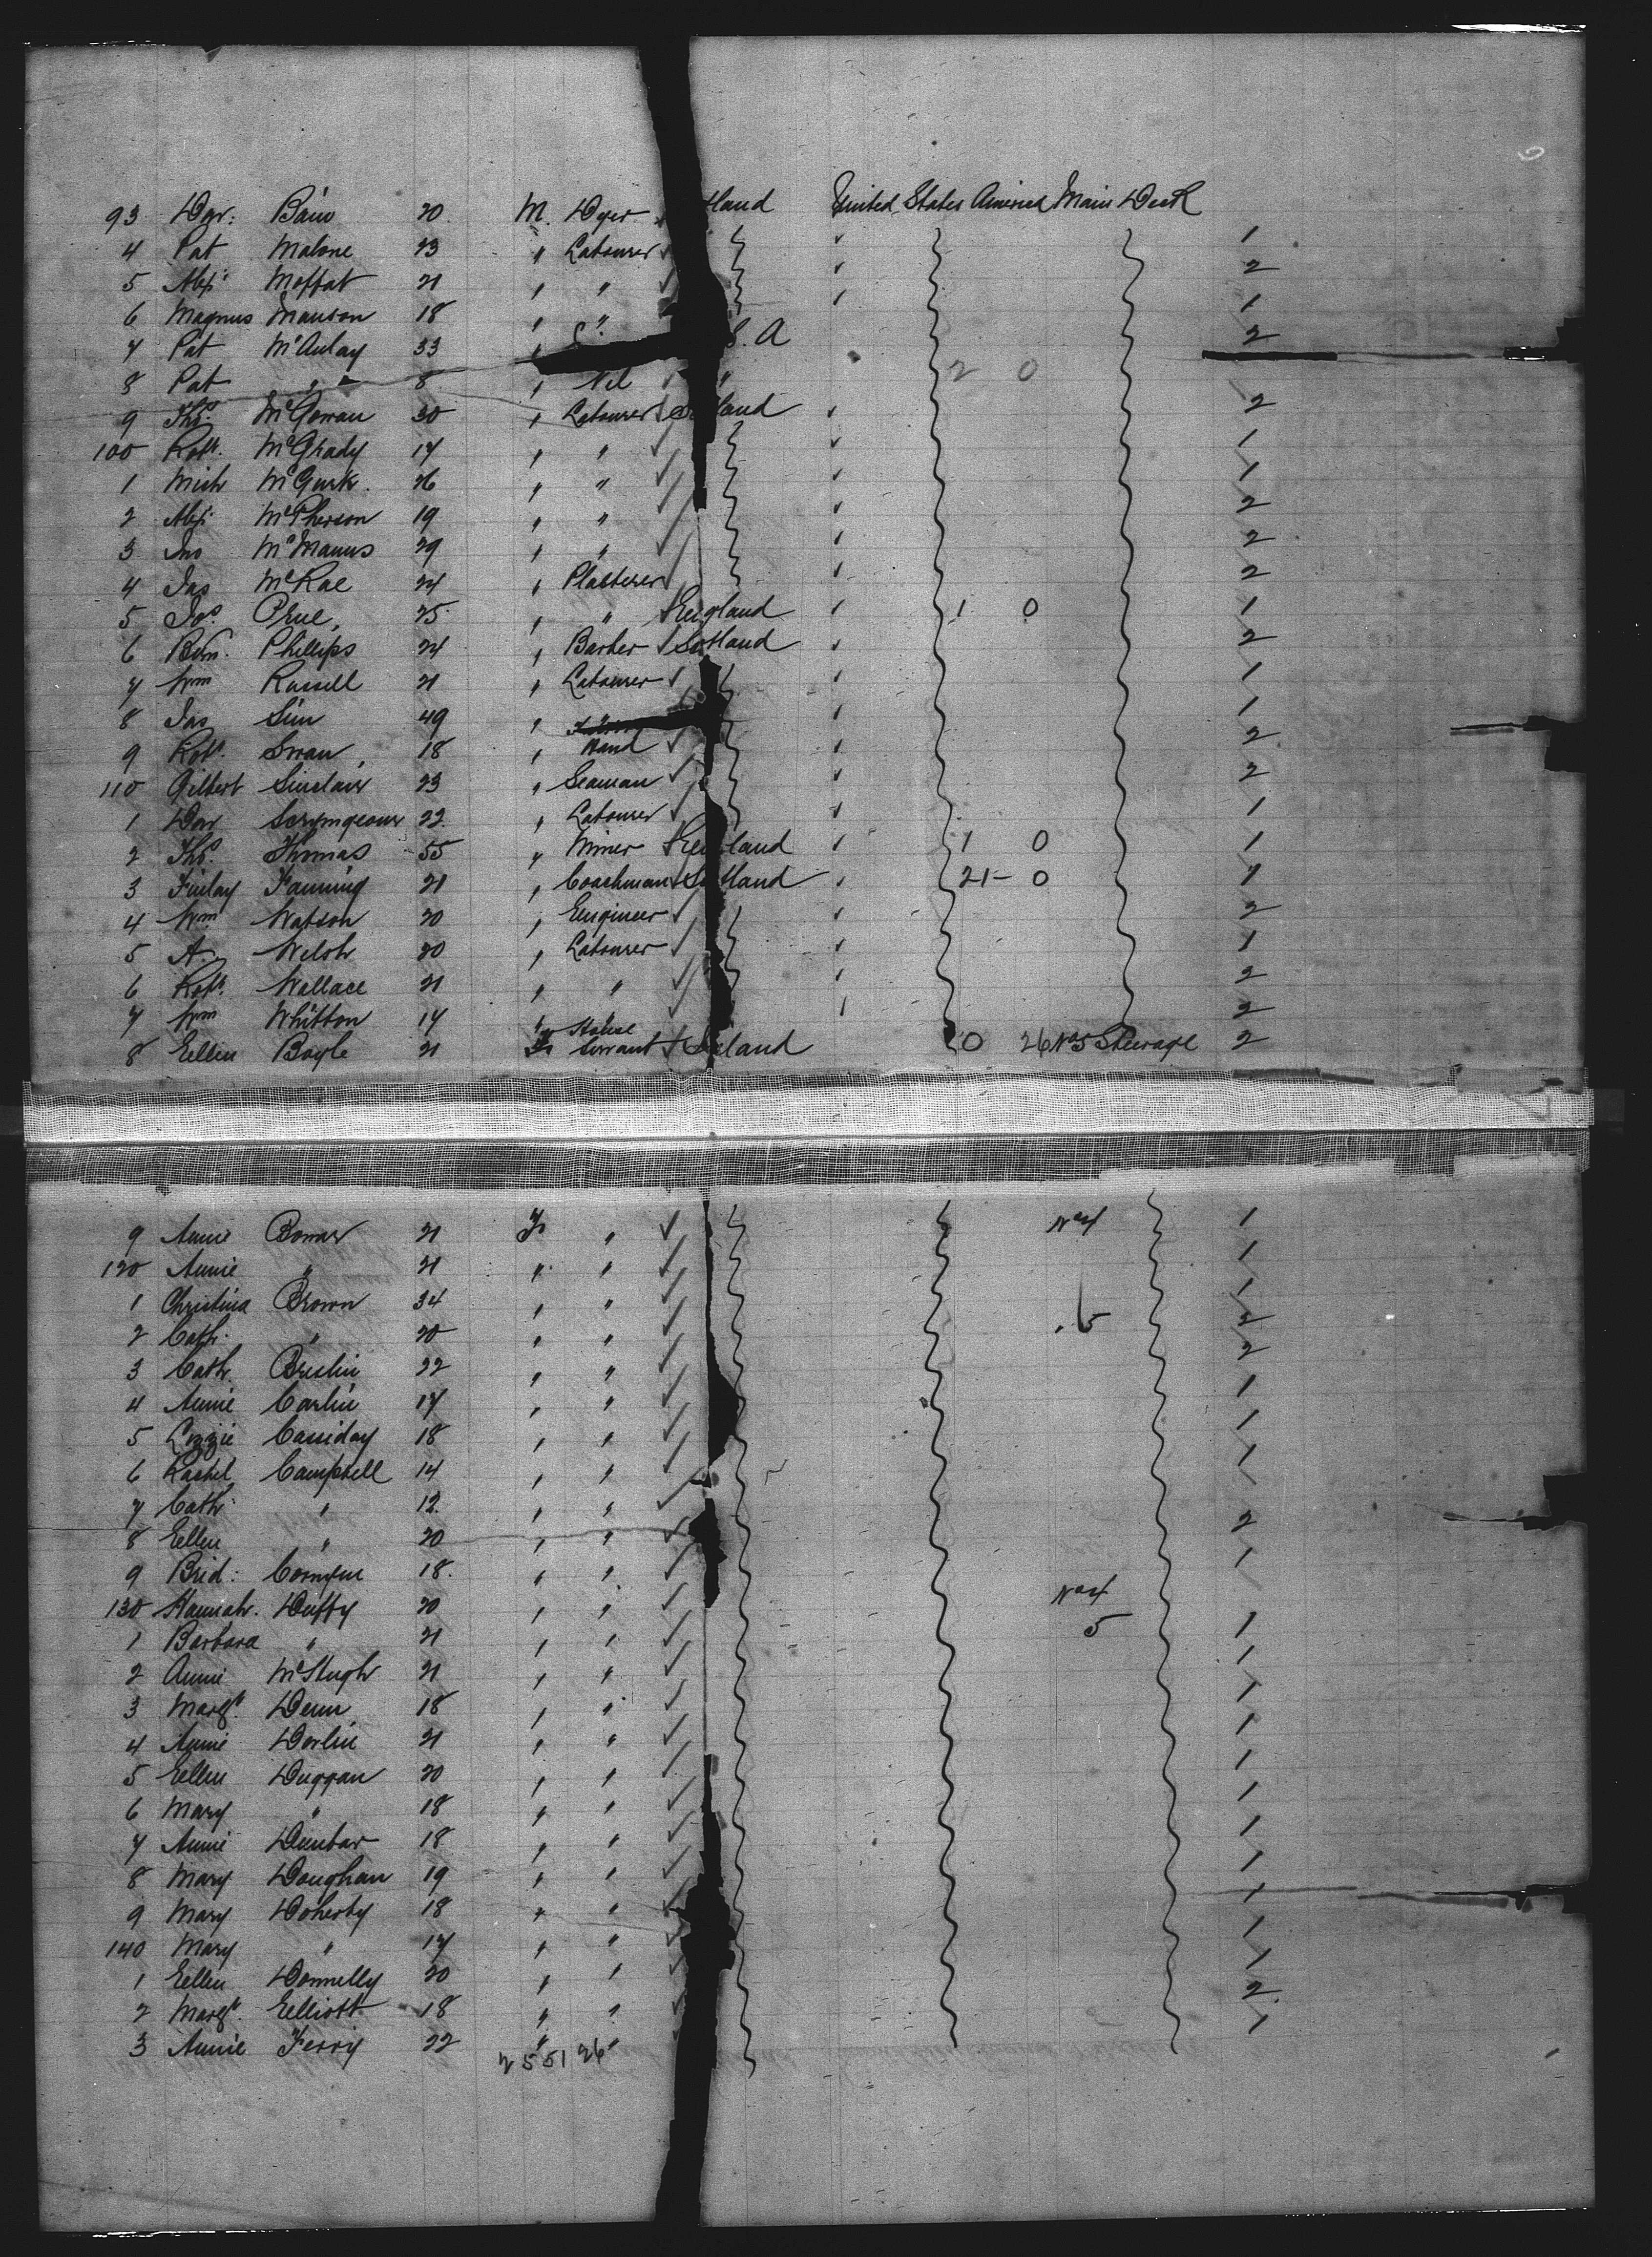 93 Dav: Bain 20 M. Dyer tland United States America Main Deck
4 Pat Malone 23 " Labourer 1
5 Alex: Moffat 21 " " 2
6 Magnus Manson 18 " " 1
7 Pat McAulay 33 " S.A 2
8 Pat " 8 " Nil " 2 0
9 Thos. McGowan 30 " Labourer Scotland 2
100 Robt. McGrady 17 " " 1
1 Mich McGurk. 26 " " 1
2 Alex: McPherson 19 " " 2
3 Jno McManus 29 " " 2
4 Jas McRae 24 " Plasterer 2
5 Jos. Prue, 25 " " England 1 0 1
6 Phillips 24 " Barber Scotland 2
7 Wm Russell 21 " Labourer 1
8 Jas Sim 49 " 1
9 Robt. Swan, 18 " Hand 2
110 Gilbert Sinclair 23 " Seaman 2
1 Dav Scrymgeour 22. " Labourer 1
2 Thos. Thomas 55 " Miner England 1 0 1
3 Finlay Fanning 21 " Coachman Scotland 21- 0 1
4 Wm Watson 20 " Engineer 2
5 A. Welsh 20 " Labourer 1
6 Robt. Wallace 21 " " 2
7 Wm Whitton 17 " " 2
8 Ellen Boyle 21 F House Servant Ireland 0 26 No5 Steerage 2
9 Annie Bonar 21 F " No4 1
120 Annie " 21 " " 1
1 Christina Brown 34 " " 1
2 Cath: " 20 " " 5 2
3 Cath. Breslin 22 " " 2
4 Annie Carlin 17 " " 1
5 Lizzie Cassiday 18 " " 1
6 Rachel Campbell 14 " " 1
7 Cath: " 12. " "
8 Ellen " 20 " " 2
9 Brid: 18. " " 1
130 Hannah. Duffy 20 " " No4
1 Barbara " 21 " " 5 1
2 Annie McHugh 21 " " 1
3 Margt. Denn 18 " " 1
4 Annie Devlin 21 " " 1
5 Ellen Duggan 20 " " 1
6 Mary " 18 " " 1
7 Annie Dunbar 18 " " 1
8 Mary Doughan 19 " " 1
9 Mary Doherty 18 " " 1
140 Mary " 17 " " 1
1 Ellen Donnelly 20 " " 1
2 Margt. Elliott 18 " " 2
3 Annie Ferry 22 " " 1
2551 26